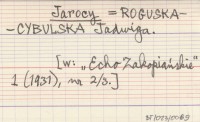 Jarocy = ROGUSKA-
-CYBULSKA Jadwiga.
[w: „Echo Zakopiańskie"
1 (1931), na 2/3.]